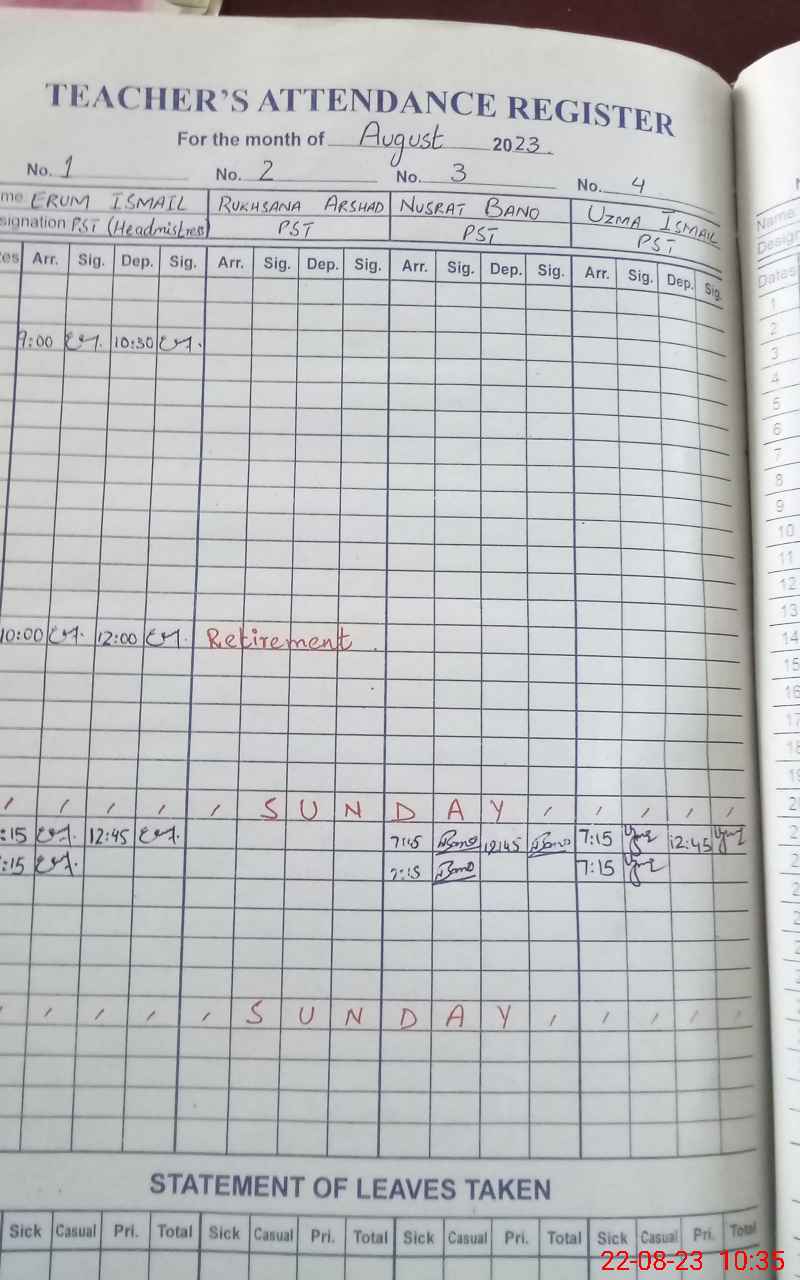 TEACHER'S ATTENDANCE REGISTER
For the month of August 2023
No. 1 No. 2 No. 3 No. 4
me ERUM ISMAIL RUKHSANA ARSHAD NUSRAT BANO UZMA ISMAIL
signation PST (Headmistress) PST PST PST
es Arr. Sig. Dep. Sig. Arr. Sig. Dep. Sig. Arr. Sig. Dep. Sig. Arr. Sig. Dep. Sig.
9:00 10:30
10:00 12:00 Retirement
SUNDAY
:15 12:45 7:15 Bano 12:45 Bano 7:15 12:45
:15 7:15 Bano 7:15
SUNDAY
STATEMENT OF LEAVES TAKEN
Sick Casual Pri. Total Sick Casual Pri. Total Sick Casual Pri. Total Sick Casual Pri. Total
Name
Design
Dates
1
2
3
4
5
6
7
8
9
10
11
12
13
14
15
16
17
18
19
22-08-23 10:35